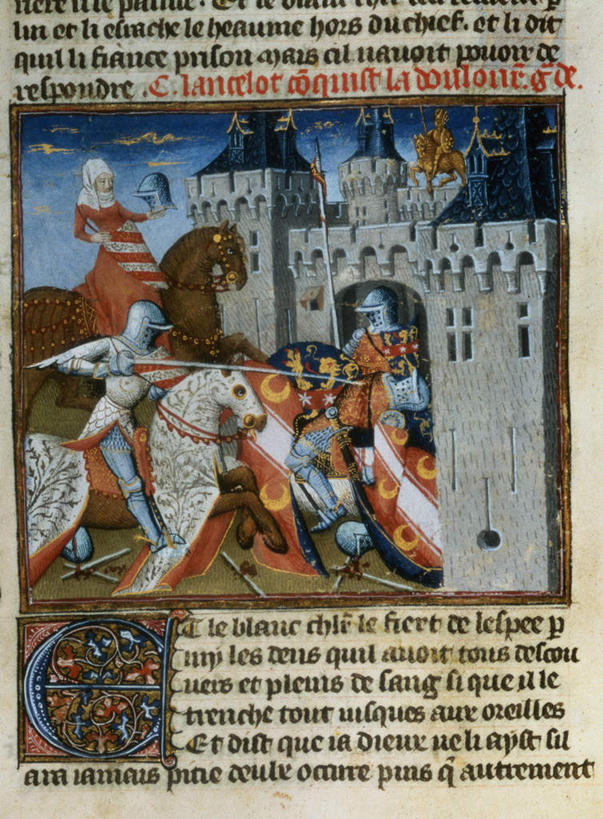 lin et li esrache le heaume hors du chief. et li dit
quil li fiance prison mais cil nauoit pouoir de
respondre . C. lancelot cõquist la douloure. g̃de.
Et le blanc chlr̃ le fiert de lespee p
my les dens quil auoit tous descou
uers et pleins de sang si que il le
trenche tout iusques aux oreilles
Et dist que ia dieux ne li ayst sil
ara iamais pitie deulx occire puis q̃ autrement